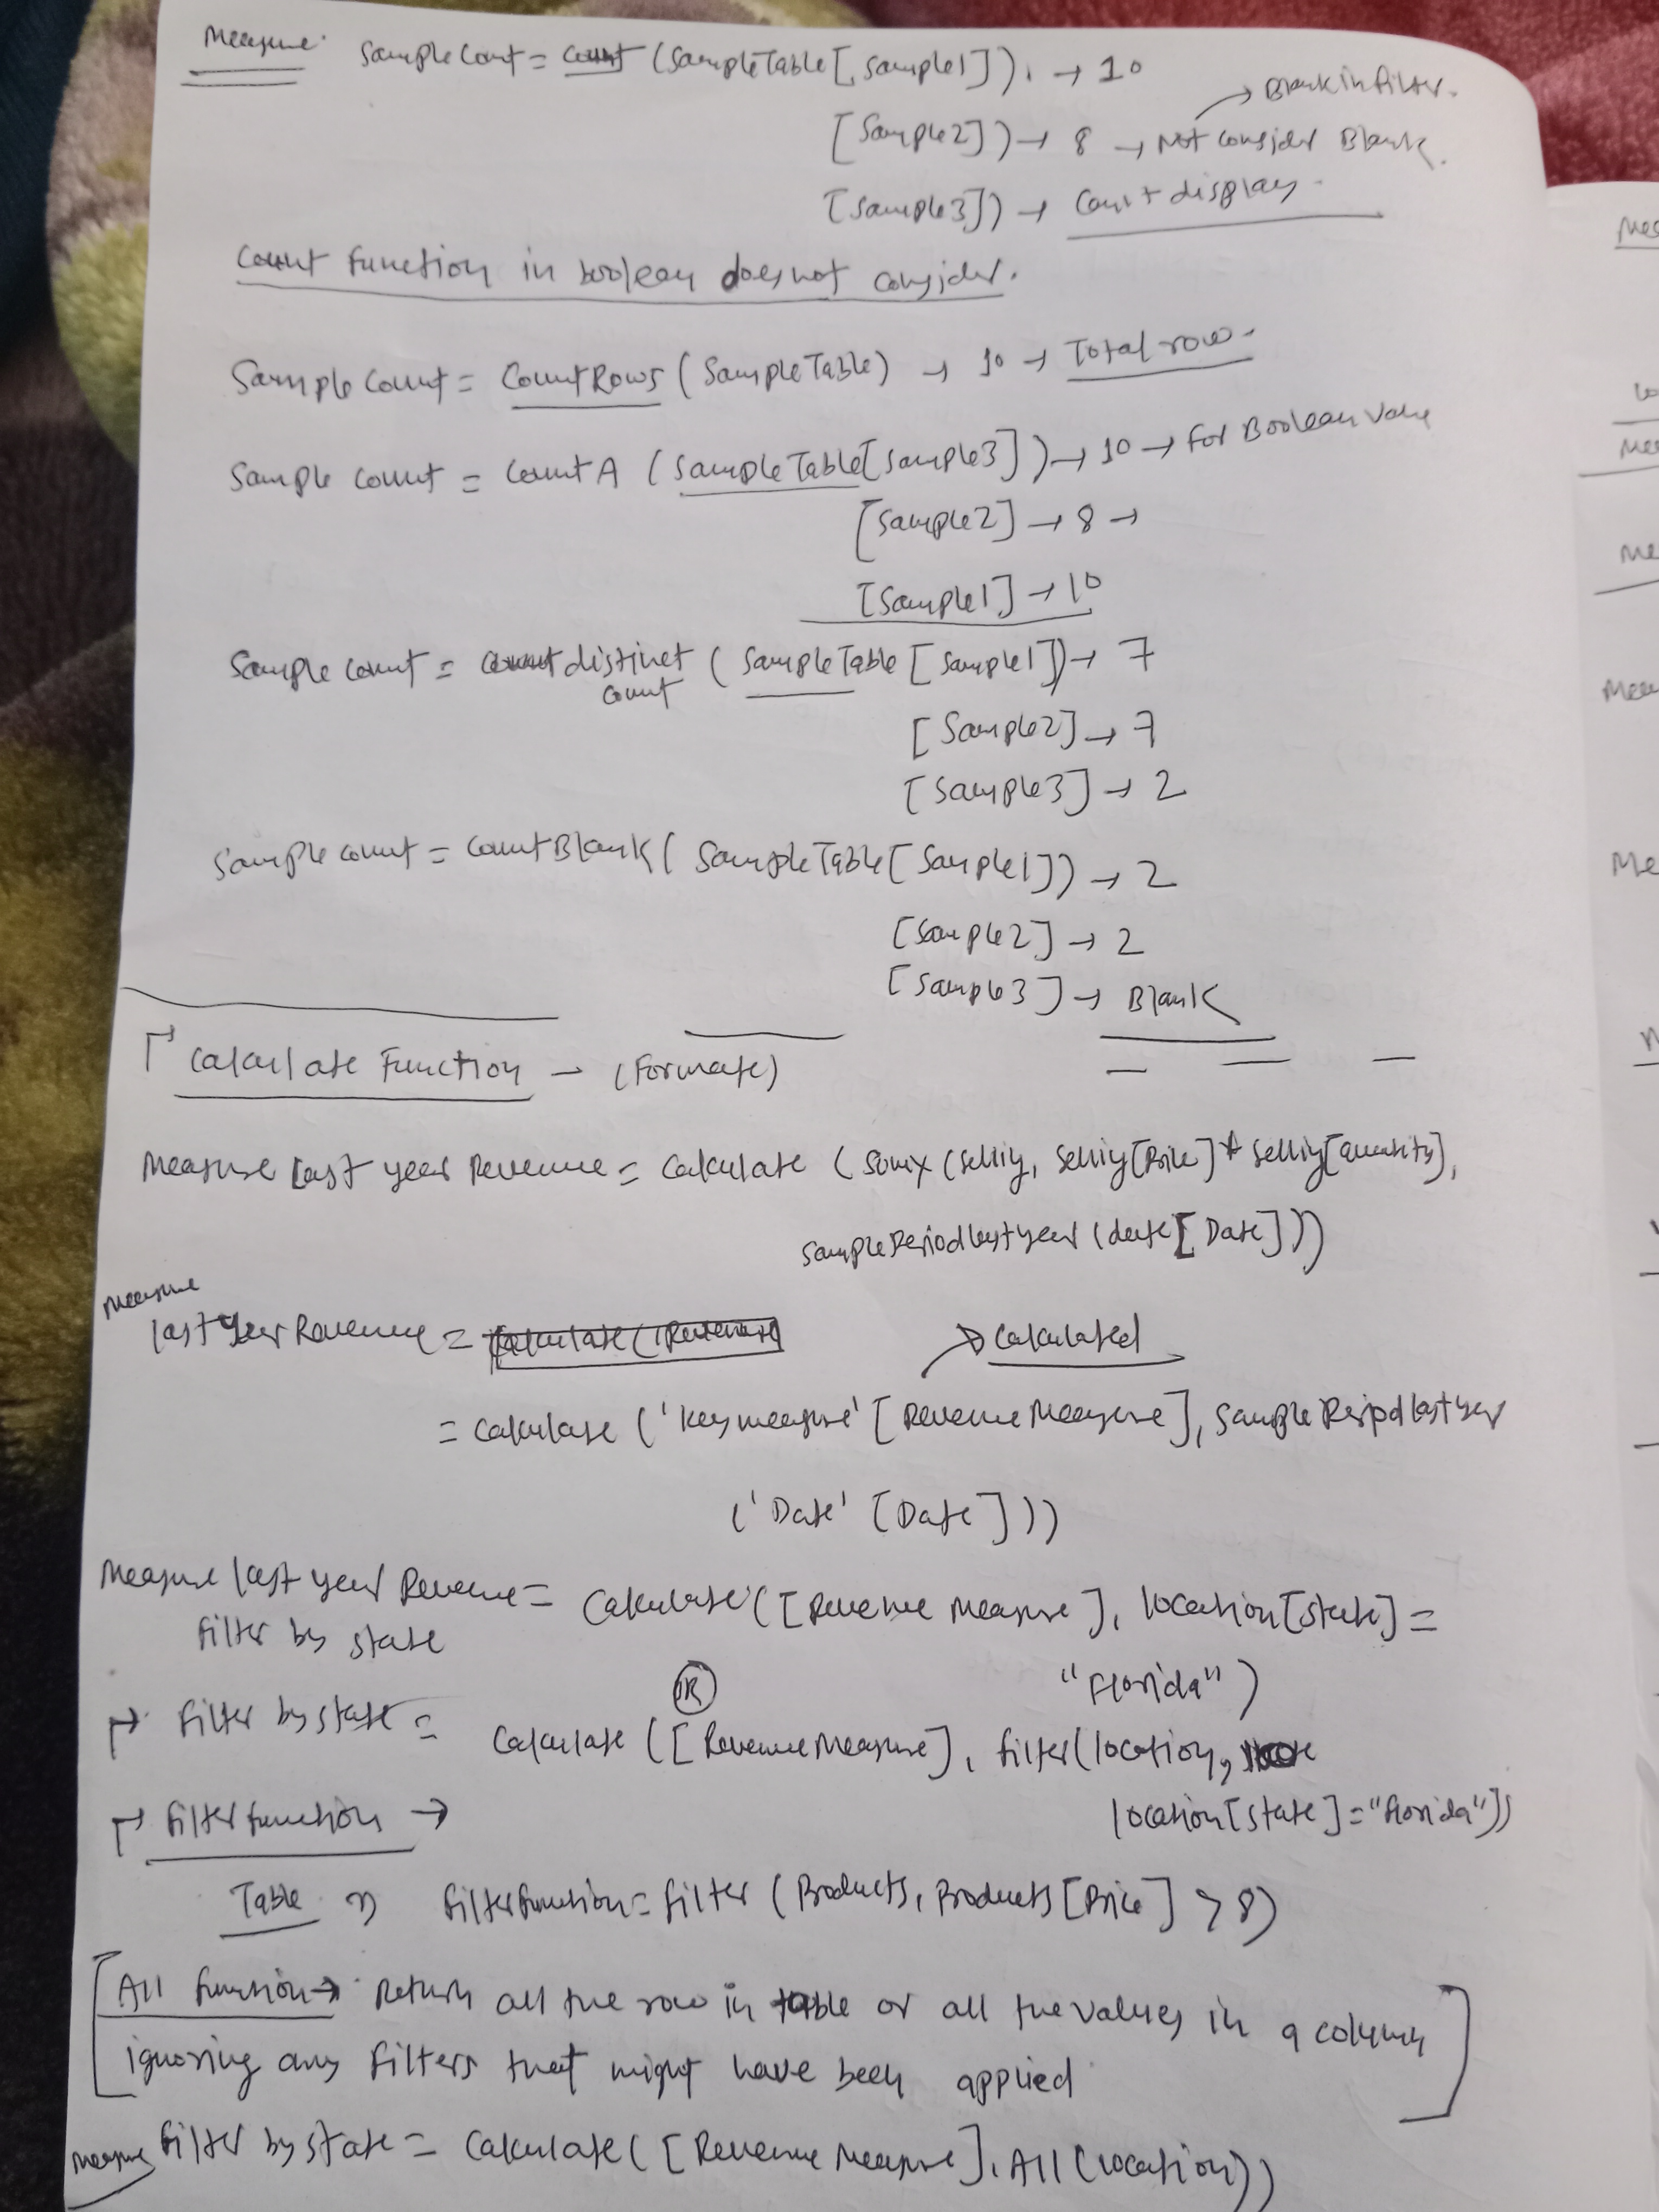 Measure: SampleCount = Count (SampleTable[Sample1]). → 10
→ Blank in filter.
[Sample2]) → 8 → Not consider Blank.
[Sample3]) → Can't display.
Count function in boolean does not consider.
Sample Count = CountRows (SampleTable) → 10 → Total row.
Sample Count = CountA (SampleTable[Sample3]) → 10 → For Boolean Value
[Sample2] → 8 →
[Sample1] → 10
Sample Count = distinct count (SampleTable [Sample1]) → 7
[Sample2] → 7
[Sample3] → 2
Sample Count = CountBlank( SampleTable[Sample1]) → 2
[Sample2] → 2
[Sample3] → Blank
Calculate Function – (Formate)
Measure last year Revenue = Calculate (Sumx (Selling, Selling[Price] * Selling[Quantity],
SamplePeriodlastyear (date[Date]))
Measure
last Year Revenue =
→ Calculated
= Calculate ('Key measure' [Revenue Measure], SamplePeriodlastyear
('Date' [Date]))
Measure last year Revenue = Calculate ([Revenue Measure], location[State] =
filter by state
"Florida")
OR
filter by state = Calculate ([Revenue Measure], filter(location,
location[state] = "Florida"))
filter function →
Table ⇒ filterfunction = filter (Products, Products[Price] > 8)
All function → Return all the row in table or all the values in a column
ignoring any filters that might have been applied
Measure filter by state = Calculate ([Revenue Measure], All (location))
Mea
Co
Mea
Me
Mea
Me